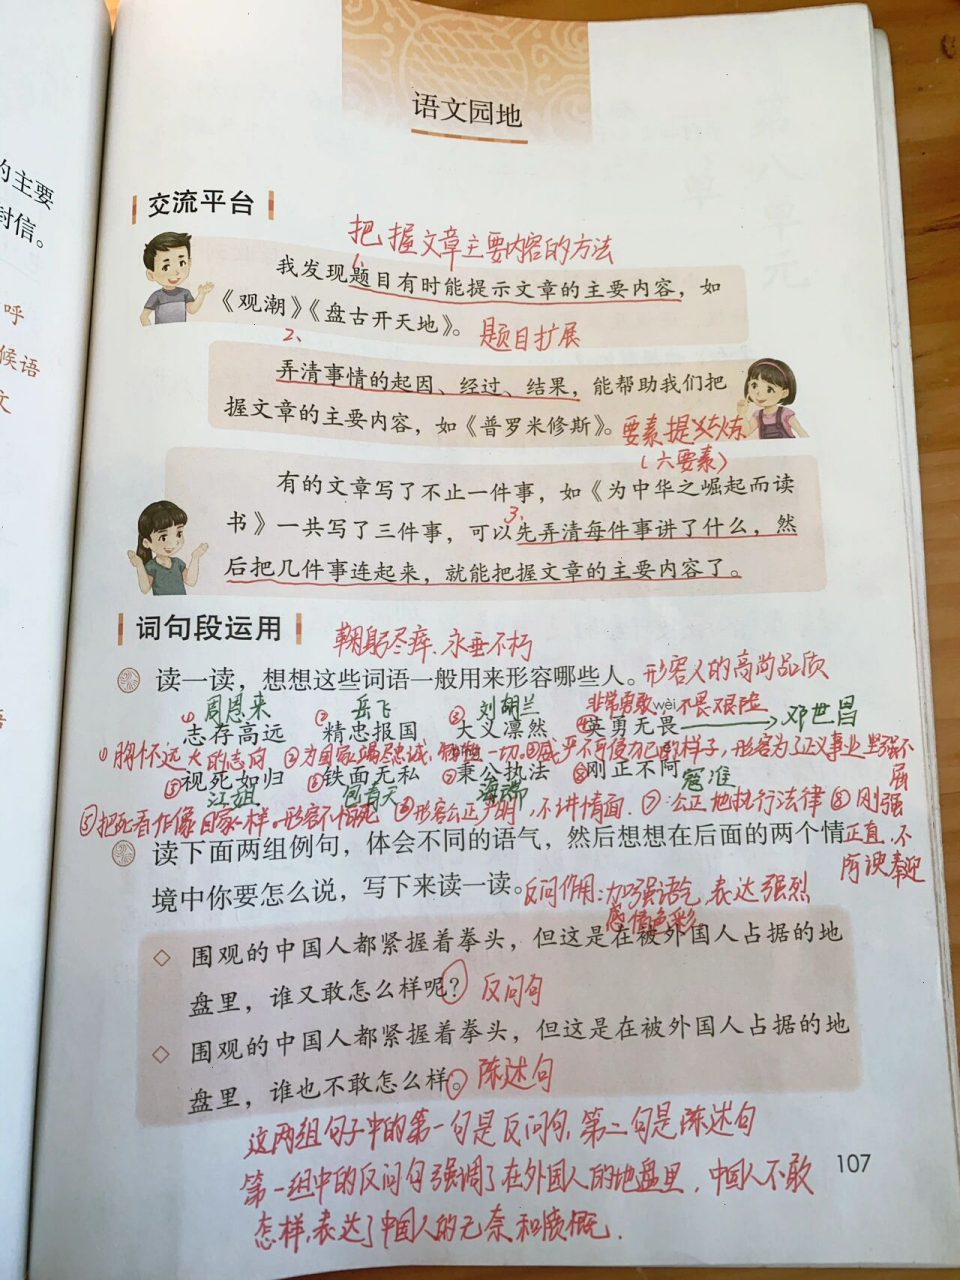 的主要
封信。
呼
候语
文
语
语文园地
交流平台
把握文章主要内容的方法
1、
我发现题目有时能提示文章的主要内容，如
《观潮》《盘古开天地》。题目扩展
2、
弄清事情的起因、经过、结果，能帮助我们把
握文章的主要内容，如《普罗米修斯》。要素提炼
（六要素）
有的文章写了不止一件事，如《为中华之崛起而读
3、
书》一共写了三件事，可以先弄清每件事讲了什么，然
后把几件事连起来，就能把握文章的主要内容了。
词句段运用
鞠躬尽瘁、永垂不朽
读一读，想想这些词语一般用来形容哪些人。形容人的高尚品质
周恩来 岳飞 刘胡兰 非常勇敢wèi不畏艰险
①志存高远 ②精忠报国 ③大义凛然 ④英勇无畏 邓世昌
①胸怀远大的志向 ②为国家竭尽忠诚，牺牲一切。③威严不可侵犯的样子，形容为了正义事业坚强不
屈
⑤视死如归 ⑥铁面无私 ⑦秉公执法 ⑧刚正不阿
江姐 包青天 海瑞 寇准
⑤把死看作像回家一样。形容不怕死 ⑥形容公正严明，不讲情面。⑦公正地执行法律 ⑧刚强
正直，不
阿谀奉迎
读下面两组例句，体会不同的语气，然后想想在后面的两个情
境中你要怎么说，写下来读一读。反问作用：加强语气，表达强烈
感情色彩
◇ 围观的中国人都紧握着拳头，但这是在被外国人占据的地
盘里，谁又敢怎么样呢？反问句
◇ 围观的中国人都紧握着拳头，但这是在被外国人占据的地
盘里，谁也不敢怎么样。陈述句
这两组句子中的第一句是反问句，第二句是陈述句
第一组中的反问句强调了在外国人的地盘里，中国人不敢
怎样，表达了中国人的无奈和愤慨．
107